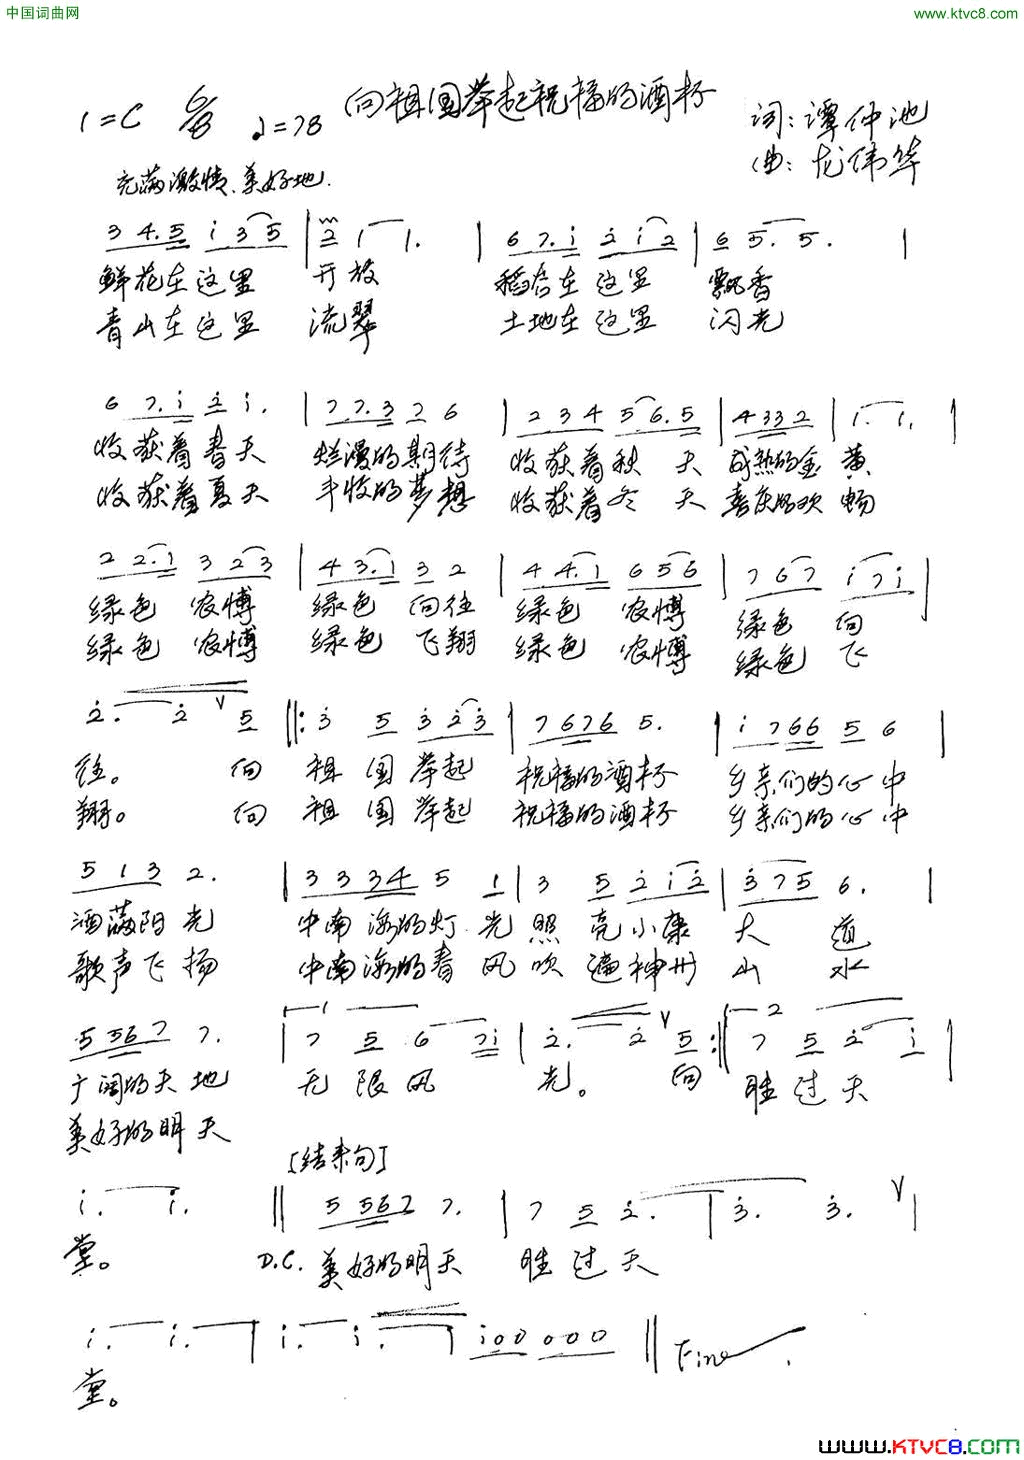 中国词曲网 www.ktvc8.com
向祖国举起祝福的酒杯
1=C 6/8 ♩=78
词:谭仲池
曲:龙伟华
充满激情、美好地.
3 4. 5 i 3 5 | 2 1 1. | 6 7. i 2 i 2 | 6 5. 5. |
鲜花在这里 开放 稻谷在这里 飘香
青山在这里 流翠 土地在这里 闪光
6 7. i 2 i. | 7 7. 3 2 6 | 2 3 4 5 6. 5 | 4 3 3 2 | 1. 1. |
收获着春天 烂漫的期待 收获着秋天 成熟的金黄、
收获着夏天 丰收的梦想 收获着冬天 喜庆的欢畅
2 2. 1 3 2 3 | 4 3. 1 3 2 | 4 4. 1 6 5 6 | 7 6 7 i 7 i |
绿色 农博 绿色 向往 绿色 农博 绿色 向
绿色 农博 绿色 飞翔 绿色 农博 绿色 飞
2. 2 V 5 ||: 3 5 3 2 3 | 7 6 7 6 5. | i 7 6 6 5 6 |
往。 向 祖国举起 祝福的酒杯 乡亲们的心中
翔。 向 祖国举起 祝福的酒杯 乡亲们的心中
5 1 3 2. | 3 3 3 4 5 1 | 3 5 2 i 2 | 3 7 5 6. |
洒满阳光 中南海的灯光照亮小康大道
歌声飞扬 中南海的春风吹遍神州山水
5 5 6 7 7. | 7 5 6 7 i | 2. 2 V 5 :|| 7 5 2 i |
广阔的天地 无限风光。 向 胜过天
美好的明天
[结束句]
i. i. || 5 5 6 7 7. | 7 5 2. | 3. 3. V |
堂。 D.C. 美好的明天 胜过天
i. i. | i. i. | i 0 0 0 0 0 || Fine.
堂。
www.KTVC8.com